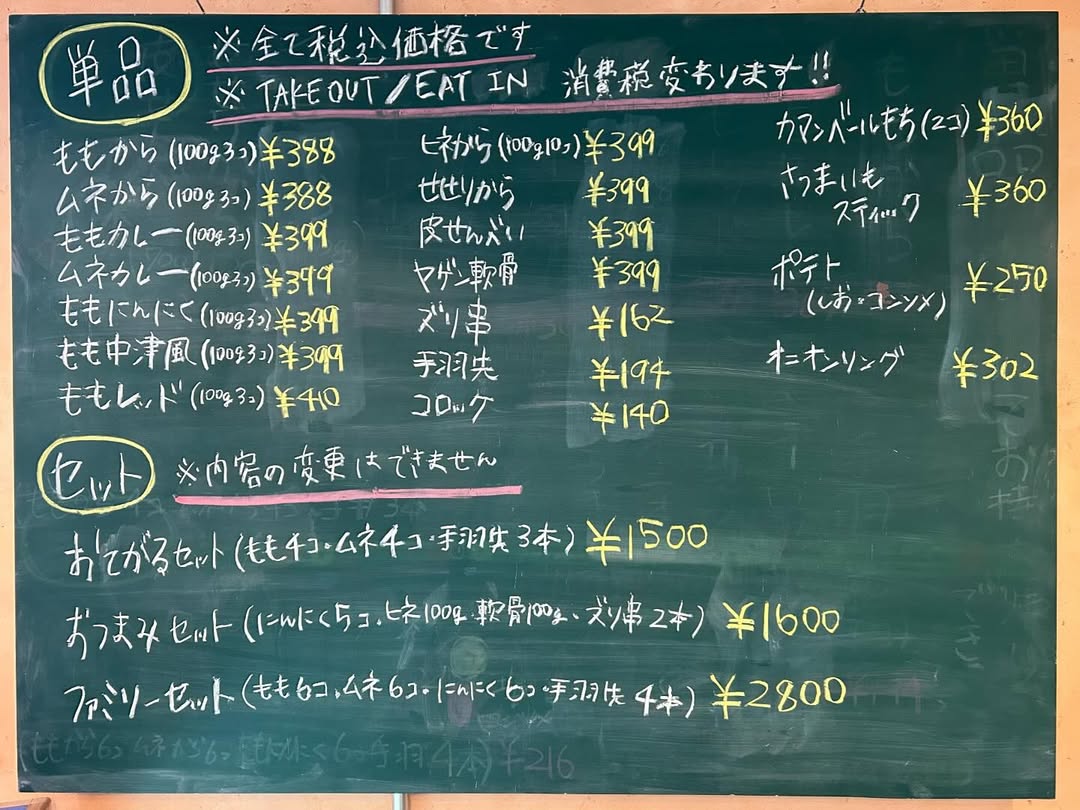 単品
※全て税込価格です
※TAKEOUT/EAT IN 消費税変わります!!
ももから(100g3コ)¥388
ムネから(100g3コ)¥388
ももカレー(100g3コ)¥399
ムネカレー(100g3コ)¥399
ももにんにく(100g3コ)¥399
もも中津風(100g3コ)¥399
ももレッド(100g3コ)¥410
ヒネから(100g10コ)¥399
せせりから ¥399
皮せんべい ¥399
ヤゲン軟骨 ¥399
ズリ串 ¥162
手羽先 ¥194
コロッケ ¥140
カマンベールもち(2コ)¥360
さつまいも
スティック ¥360
ポテト
(しお・コンソメ) ¥250
オニオンリング ¥302
セット ※内容の変更はできません
おてがるセット(もも4コ・ムネ4コ・手羽先3本)¥1500
おつまみセット(にんにく5コ・ヒネ100g・軟骨100g・ズリ串2本)¥1600
ファミリーセット(もも6コ・ムネ6コ・にんにく6コ・手羽先4本)¥2800